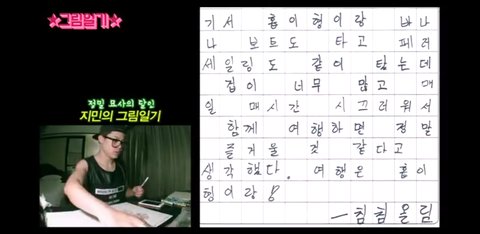 ★그림일기★
정밀 묘사의 달인
지민의 그림일기
기서 홉이형이랑 바나
나 보트도 타고 패러
세일링도 같이 탔는데
겁이 너무 많고 매
일 매시간 시끄러워서
함께 여행하면 정말
즐거울 것 같다고
생각했다. 여행은 홉이
형이랑!
-침침올림